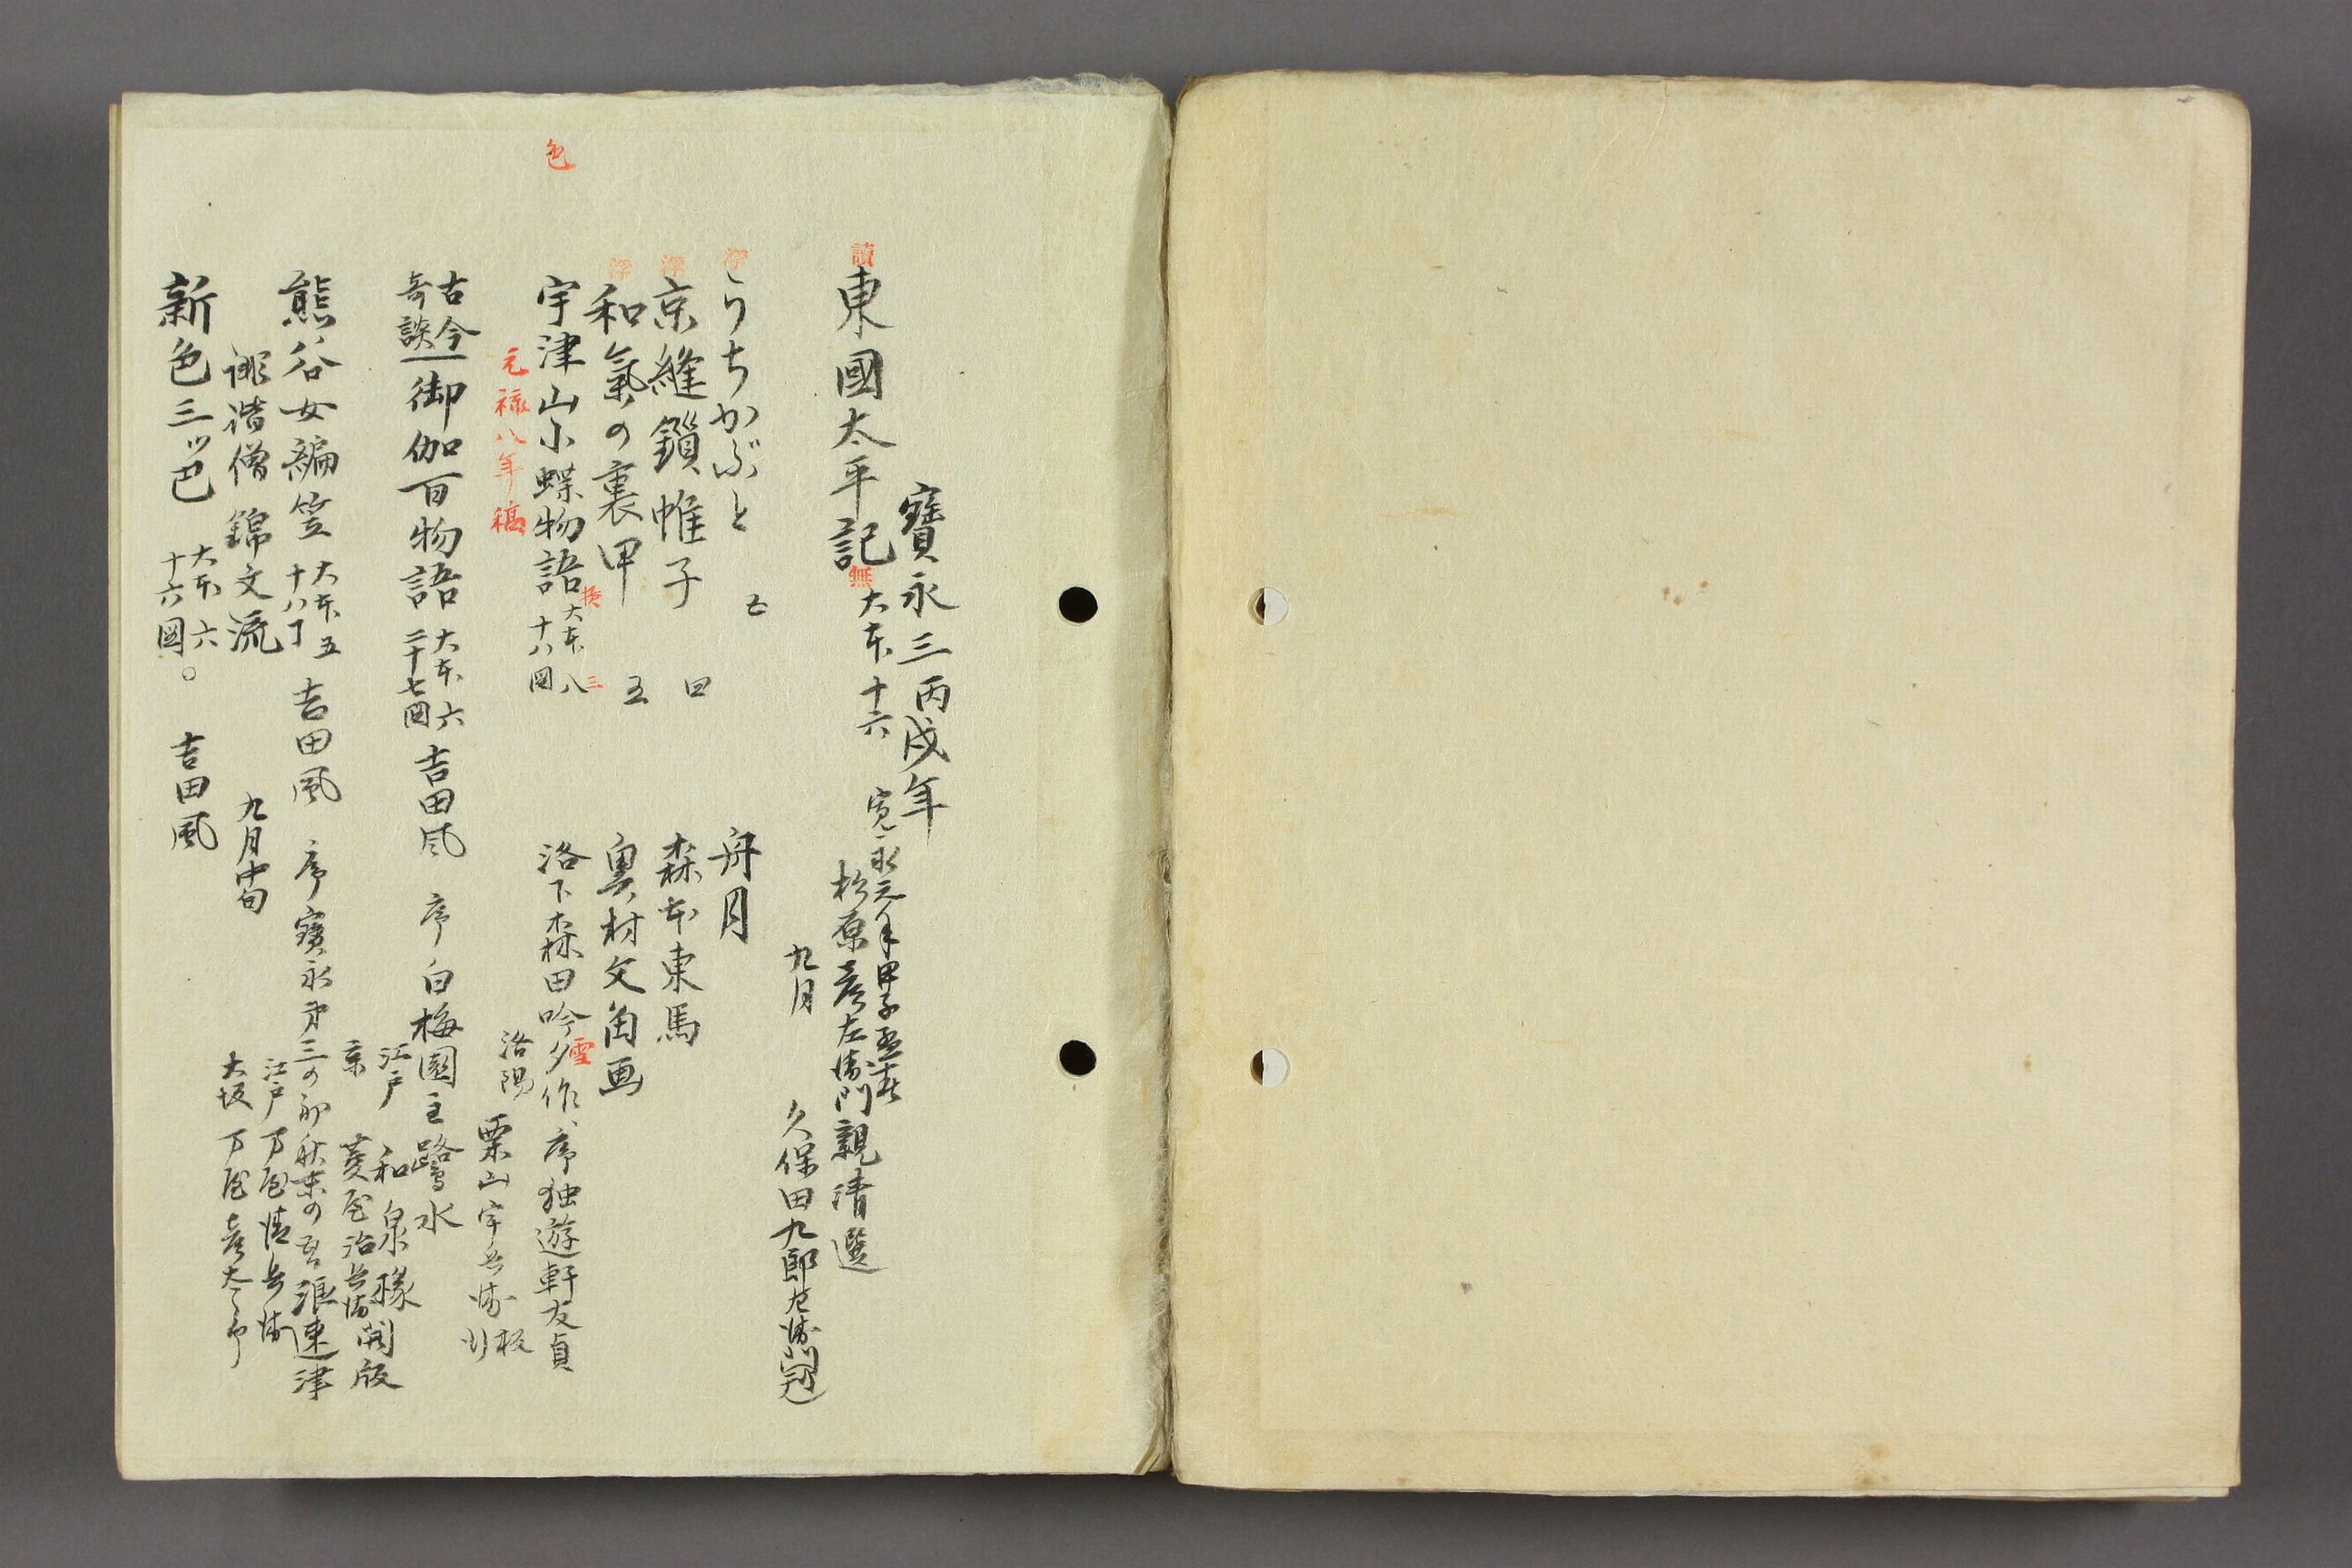 寶永三丙戌年
讀 東國太平記 無 大本十六 寛永元年甲子孟春
杉原彦左衛門親清選
九月 久保田九郎右衛門
浮 うちかぶと 五 舟月
浮 京縫鎖帷子 四 森本東馬
浮 和氣の裏甲 五 奥村文角画
色 宇津山小蝶物語 横 大本八 三 十八図 洛下森田吟夕作 雪 序独遊軒友貞
元禄八年稿 洛陽 栗山宇兵衛 板行
古今奇談 御伽百物語 大本六 二十七図 吉田風 序 白梅園主鷺水
江戸 和泉掾
京 菱屋治兵衛 開版
熊谷女編笠 大本五 十八丁 吉田風 序 寶永第三の初秋末の五 浪速津
誹諧僧 錦文流 九月中旬 江戸 万屋清兵衛
大坂 万屋彦太郎
新色三ツ巴 大本六 十六図。 吉田風